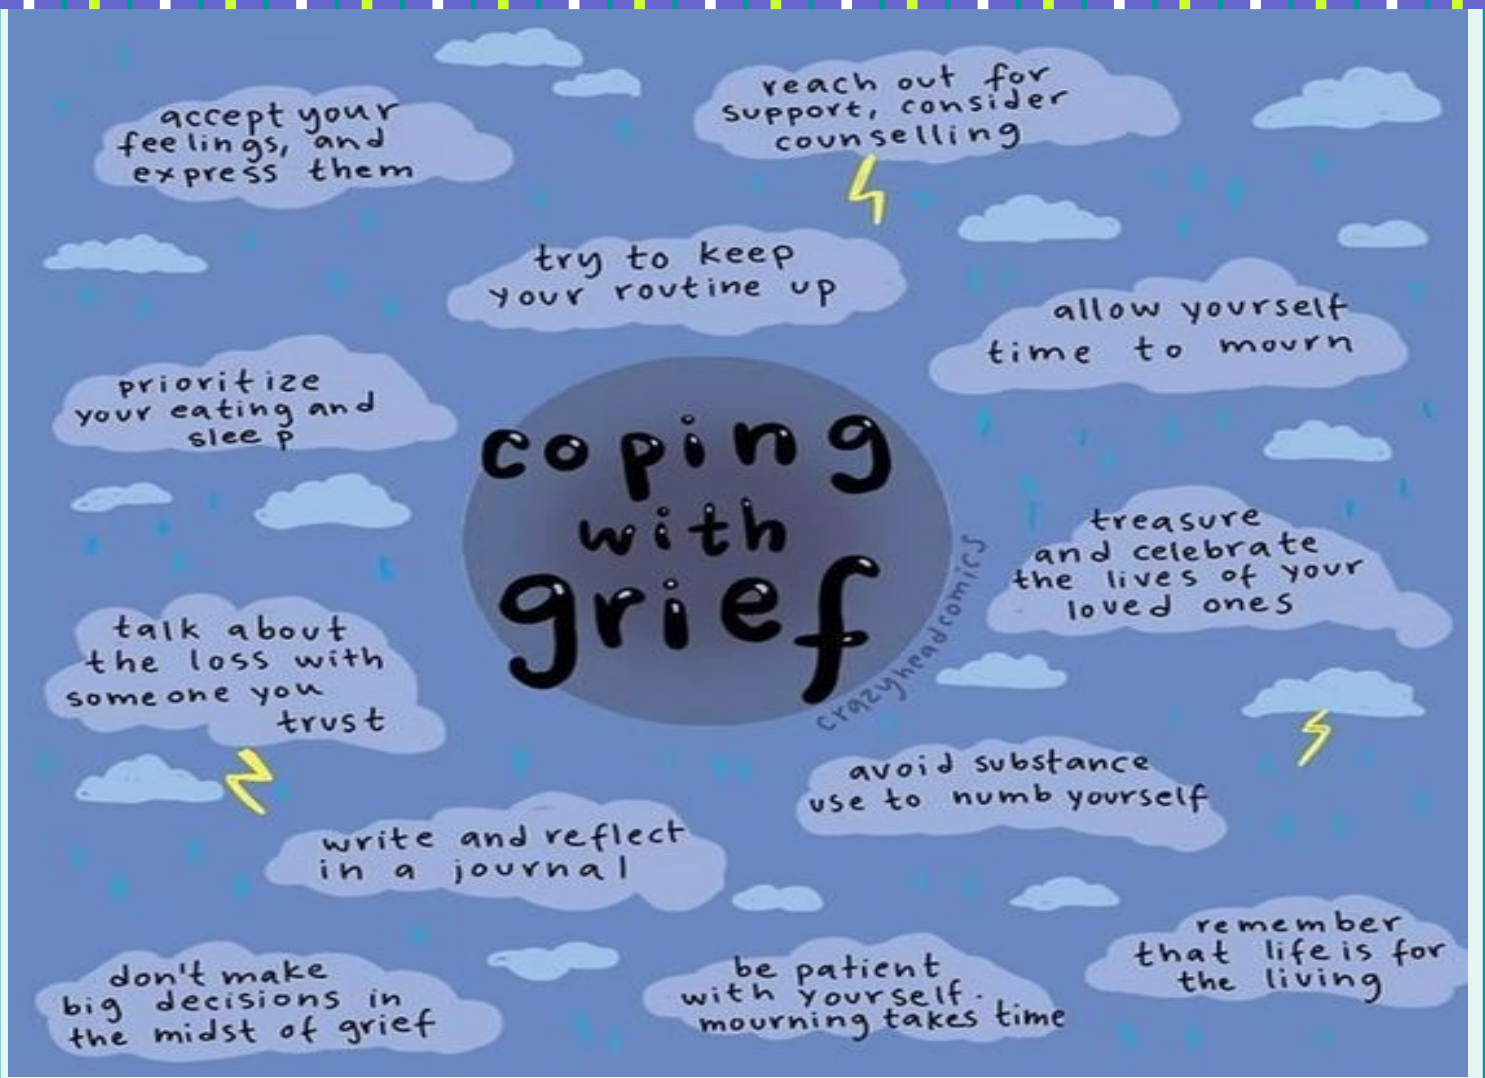 accept your
feelings, and
express them
reach out for
support, consider
counselling
try to keep
your routine up
allow yourself
time to mourn
prioritize
your eating and
sleep
coping
with
grief
crazyheadcomics
treasure
and celebrate
the lives of your
loved ones
talk about
the loss with
someone you
trust
avoid substance
use to numb yourself
write and reflect
in a journal
remember
that life is for
the living
don't make
big decisions in
the midst of grief
be patient
with yourself.
mourning takes time